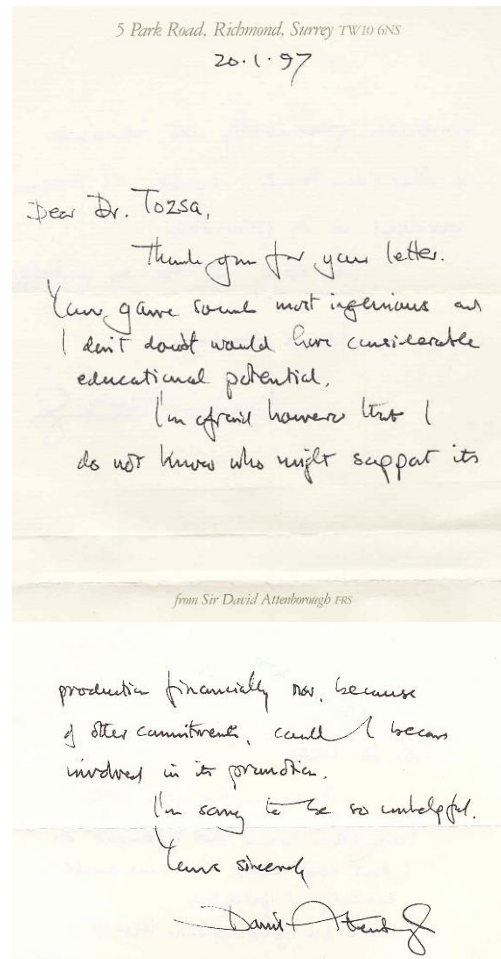 5 Park Road, Richmond, Surrey TW10 6NS
20.1.97
Dear Dr. Tozsa,
Thank you for your letter.
Your game sounds most ingenious and
I don't doubt would have considerable
educational potential.
I'm afraid however that I
do not know who might support its
from Sir David Attenborough FRS
production financially nor, because
of other commitments, could I become
involved in its promotion.
I'm sorry to be so unhelpful.
Yours sincerely
David Attenborough